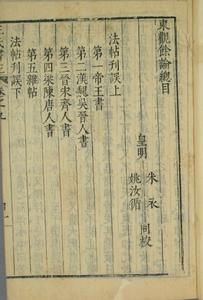 東觀餘論總目
皇明
朱衣
姚汝循 同校
法帖刊誤上
第一帝王書
第二漢魏吳晉人書
第三晉宋齊人書
第四梁陳唐人書
第五雜帖
法帖刊誤下